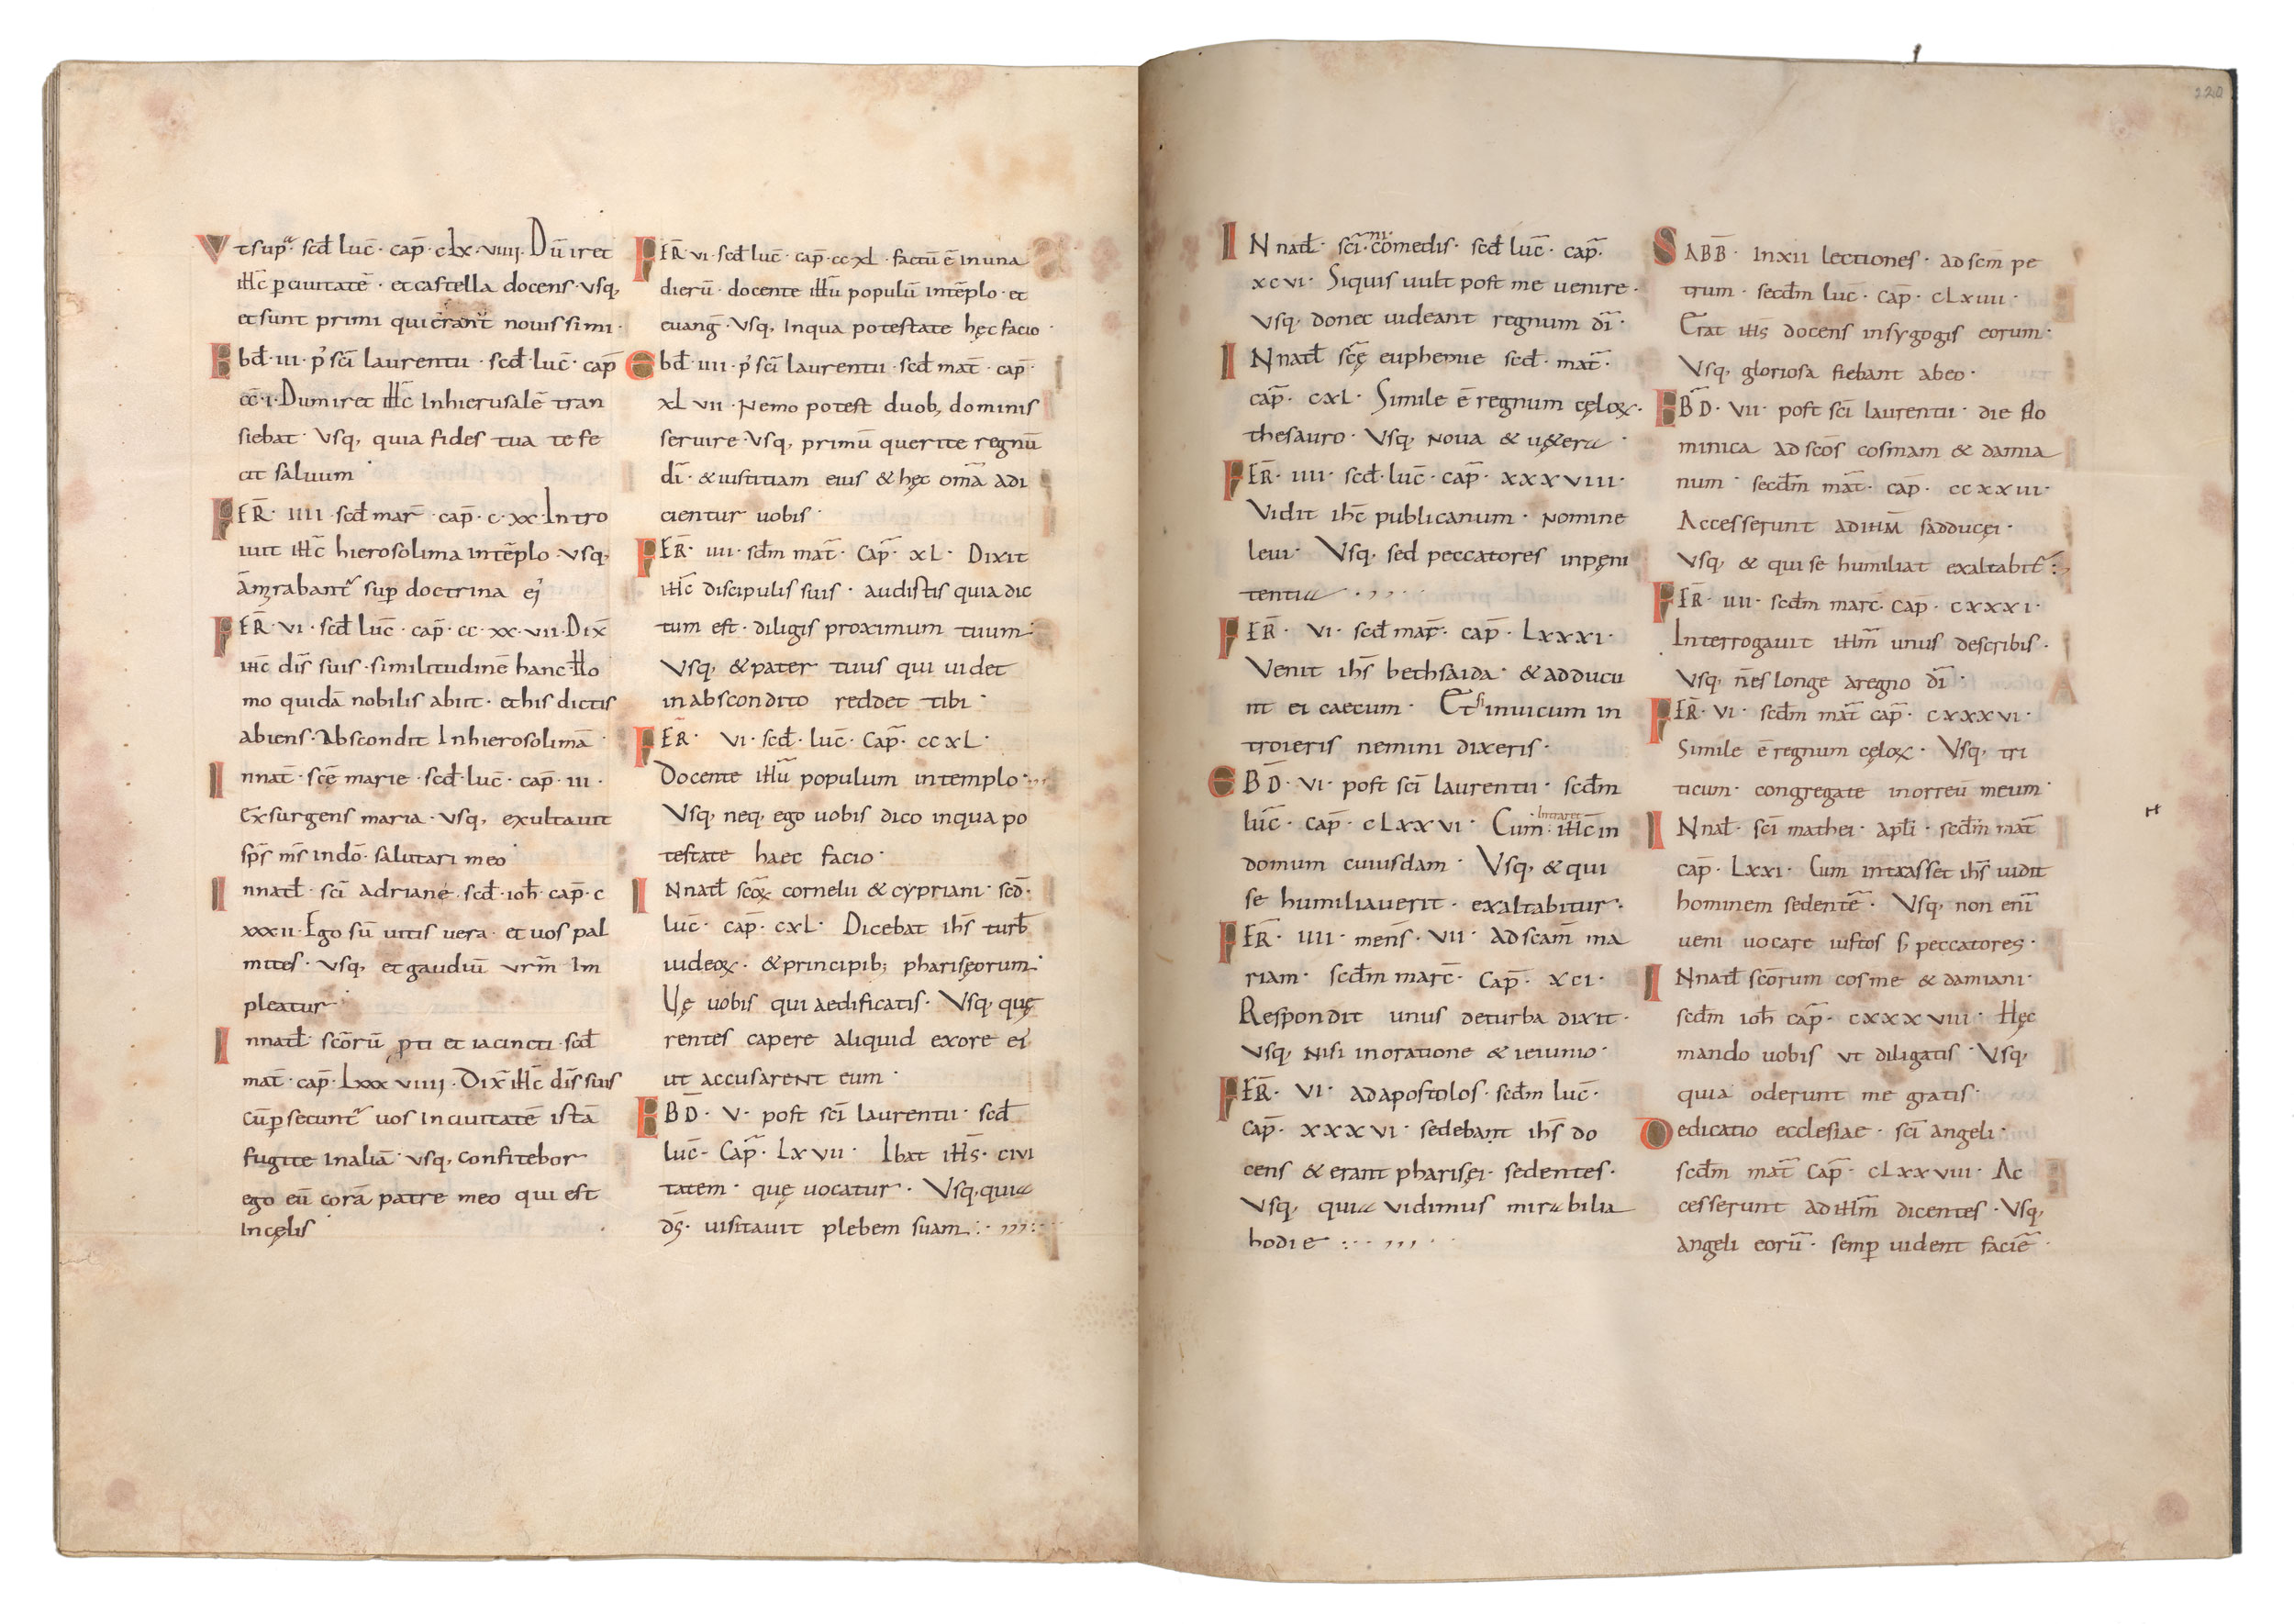 Vt supͣ· scđ luc̄· cap̄· cLx· viiii· Dū iret
iħc̄ p ciuitatē· et castella docens· vsq,
et sunt primi qui erant nouissimi·
Ebđ· iii· p' sc̄i laurentii· scđ· luc̄· cap̄
cc̄· i· Dum iret iħc̄ In hierusalē tran
siebat· Vsq, quia fides tua te fe
cit saluum·
FER̄· iiii· scđ mar̄· cap̄· c· xx· Intro
iuit iħc̄ hierosolima in tēplo· vsq,
rabant᷑ sup doctrina ej
FER̄· vi· scđ luc̄· cap̄· cc· xx· vii· Dix̄
iħc̄ dis̄ suis· similitudinē hanc Ho
mo quidā nobilis abiit· et his dictis
abiens· Abscondit In hierosolimā·
Innat̄· sc̄ē marie· scđ· luc̄· cap̄· iii·
Exsurgens maria· vsq, exultauit
sp̄s m̄s in dō· salutari meo·
Innatł· sc̄i adriane· scđ· ioħ· cap̄· c
xxxii· Ego sū uitis uera· et uos pal
mites· vsq, et gaudiū vr̄m Im
pleatur·
Innatł· sc̄orū p̄ti et iacincti· scđ
mat̄· cap̄· Lxxxviiii· Dix̄ iħc̄ dis̄ suis
Cū psecunt᷑ uos In ciuitatē istā
fugite In aliā· vsq, confitebor
ego eū corā patre meo qui est
In cęlis·
FER̄· vi· scđ luc̄· cap̄· cc xL· factū ē In una
dierū· docente iħū populū in tēplo· et
euanḡ· Vsq, In qua potestate hęc facio·
Ebđ· iiii· p' sc̄i laurentii· scđ mat̄· cap̄·
xLvii· Nemo potest duob, dominis
seruire· Vsq, primū querite regnū
dī· & iustitiam eius & hęc om̄a adi
cientur uobis·
FER̄· iiii· scđm mat̄· Cap̄· xL· Dixit
iħc̄ discipulis suis· audistis quia dic
tum est· diligis proximum tuum·
Vsq, & pater tuus qui uidet
in abscondito reddet tibi·
FER̄· vi· scđ· luc̄· Cap̄· ccxL·
Docente iħū populum in templo·
Vsq, neq, ego uobis dico in qua po
testate haec facio·
INnatł sc̄oꝝ cornelii & cypriani· scđ·
luc̄· cap̄· cxL· Dicebat ihs̄ turƀ
iudeoꝝ· & principib; pharisęorum·
Vę uobis qui aedificatis· Vsq, quę
rentes capere aliquid ex ore ei'
ut accusarent eum·
EBD̄· V· post sc̄i laurentii· scđ
luc̄· Cap̄· Lxvii· Ibat iħs̄· civi
tatem· quę uocatur· Vsq, quia
ds̄· uisitauit plebem suam :· ,,, :·
INnatł· sc̄i· comedis· scđ luc̄· cap̄·
ni·
xcvi· Siquis uult post me uenire·
Vsq, donec uideant regnum dī·
INnatł sc̄ę euphemie scđ· mat̄·
cap̄· cxL· Simile ē regnum cęloꝝ·
thesauro· Vsq, Noua & u&era·
FER̄· iiii· scđ· luc̄· cap̄· xxxviii·
Vidit ihc̄ publicanum· Nomine
leui· Vsq, sed peccatores in pęni
tentia· , , ,
FER̄· vi· scđ mar̄· cap̄· Lxxxi·
Venit ihs̄ bethsaida· & adducu
nt ei caecum· Et si in uicum in
troieris nemini dixeris·
EBD̄· vi· post sc̄i laurentii· scđm
luc̄· cap̄· cLxxvi· Cum· iħc̄ in
Intraret
domum cuiusdam· Vsq, & qui
se humiliauerit· exaltabitur·
FER̄· iiii· mens̄· vii· ad scam̄ ma
riam· scđm marc̄· Cap̄· xci·
Respondit unus de turba dixit·
Vsq, Nisi in oratione & ieiunio·
FER̄· vi· ad apostolos· scđm luc̄·
Cap̄· xxxvi· sedebant ihs̄ do
cens & erant pharisęi· sedentes·
Vsq, quia vidimus mirabilia
hodie :· , , ,
SABB̄· In xii lectiones· ad scm̄ pe
trum· secđm luc̄· Cap̄· cLxiiii·
Erat iħs̄ docens in sygogis eorum·
Vsq, gloriosa fiebant ab eo·
EBD̄· vii· post sc̄i laurentii· die do
minica ad scōs cosmam & damia
num· secđm mat̄· cap̄· ccxxiii·
Accesserunt ad iħm̄ sadducęi·
Vsq, & qui se humiliat exaltabit᷑ :,
FER̄· iiii· scđm marc̄· Cap̄· cxxxi·
Interrogauit iħm̄ unus de scribis·
Vsq, n̄ es longe a regno dī·
FER̄· vi· scđm mat̄ cap̄· cxxxvi·
Simile ē regnum cęloꝝ· Vsq, tri
ticum· congregate in orreū meum·
INnał· sc̄i mathei· apłi· scđm mat̄
cap̄· Lxxi· Cum intrasset ihs̄ uidit
hominem sedentē· Vsq, non eni᷑
ueni uocare iustos s; peccatores·
INnatł scōrum cosme & damiani·
scđm ioħ cap̄· cxxxviii· Hęc
mando uobis ut diligatis· Vsq,
quia oderunt me gratis·
Dedicatio ecclesiae· sc̄i angeli·
scđm mat̄ Cap̄· cLxxviii· Ac
cesserunt ad iħm̄ dicentes· Vsq,
angeli eorū· semp uident faciē·
220